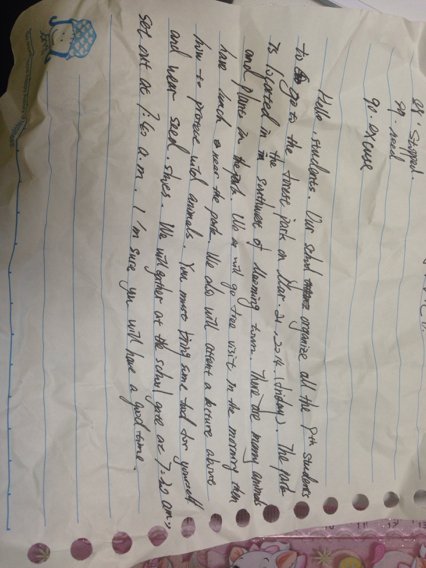 stopped.
89. need
90. excuse
Hello, students. Our school organize all the 9th students
to go to the forest park on Mar. 21, 2014. (friday). The park
is located in the southwest of Blooming town. There are many animals
and plants in the park. We will go free visit in the morning then
have lunch near the park. We also will attend a lecture above
how to protect wild animals. You must bring some food for yourself
and wear shoes. We will gather at the school gate at 7:20 am,
set out at 7:40 a.m. I'm sure you will have a good time.